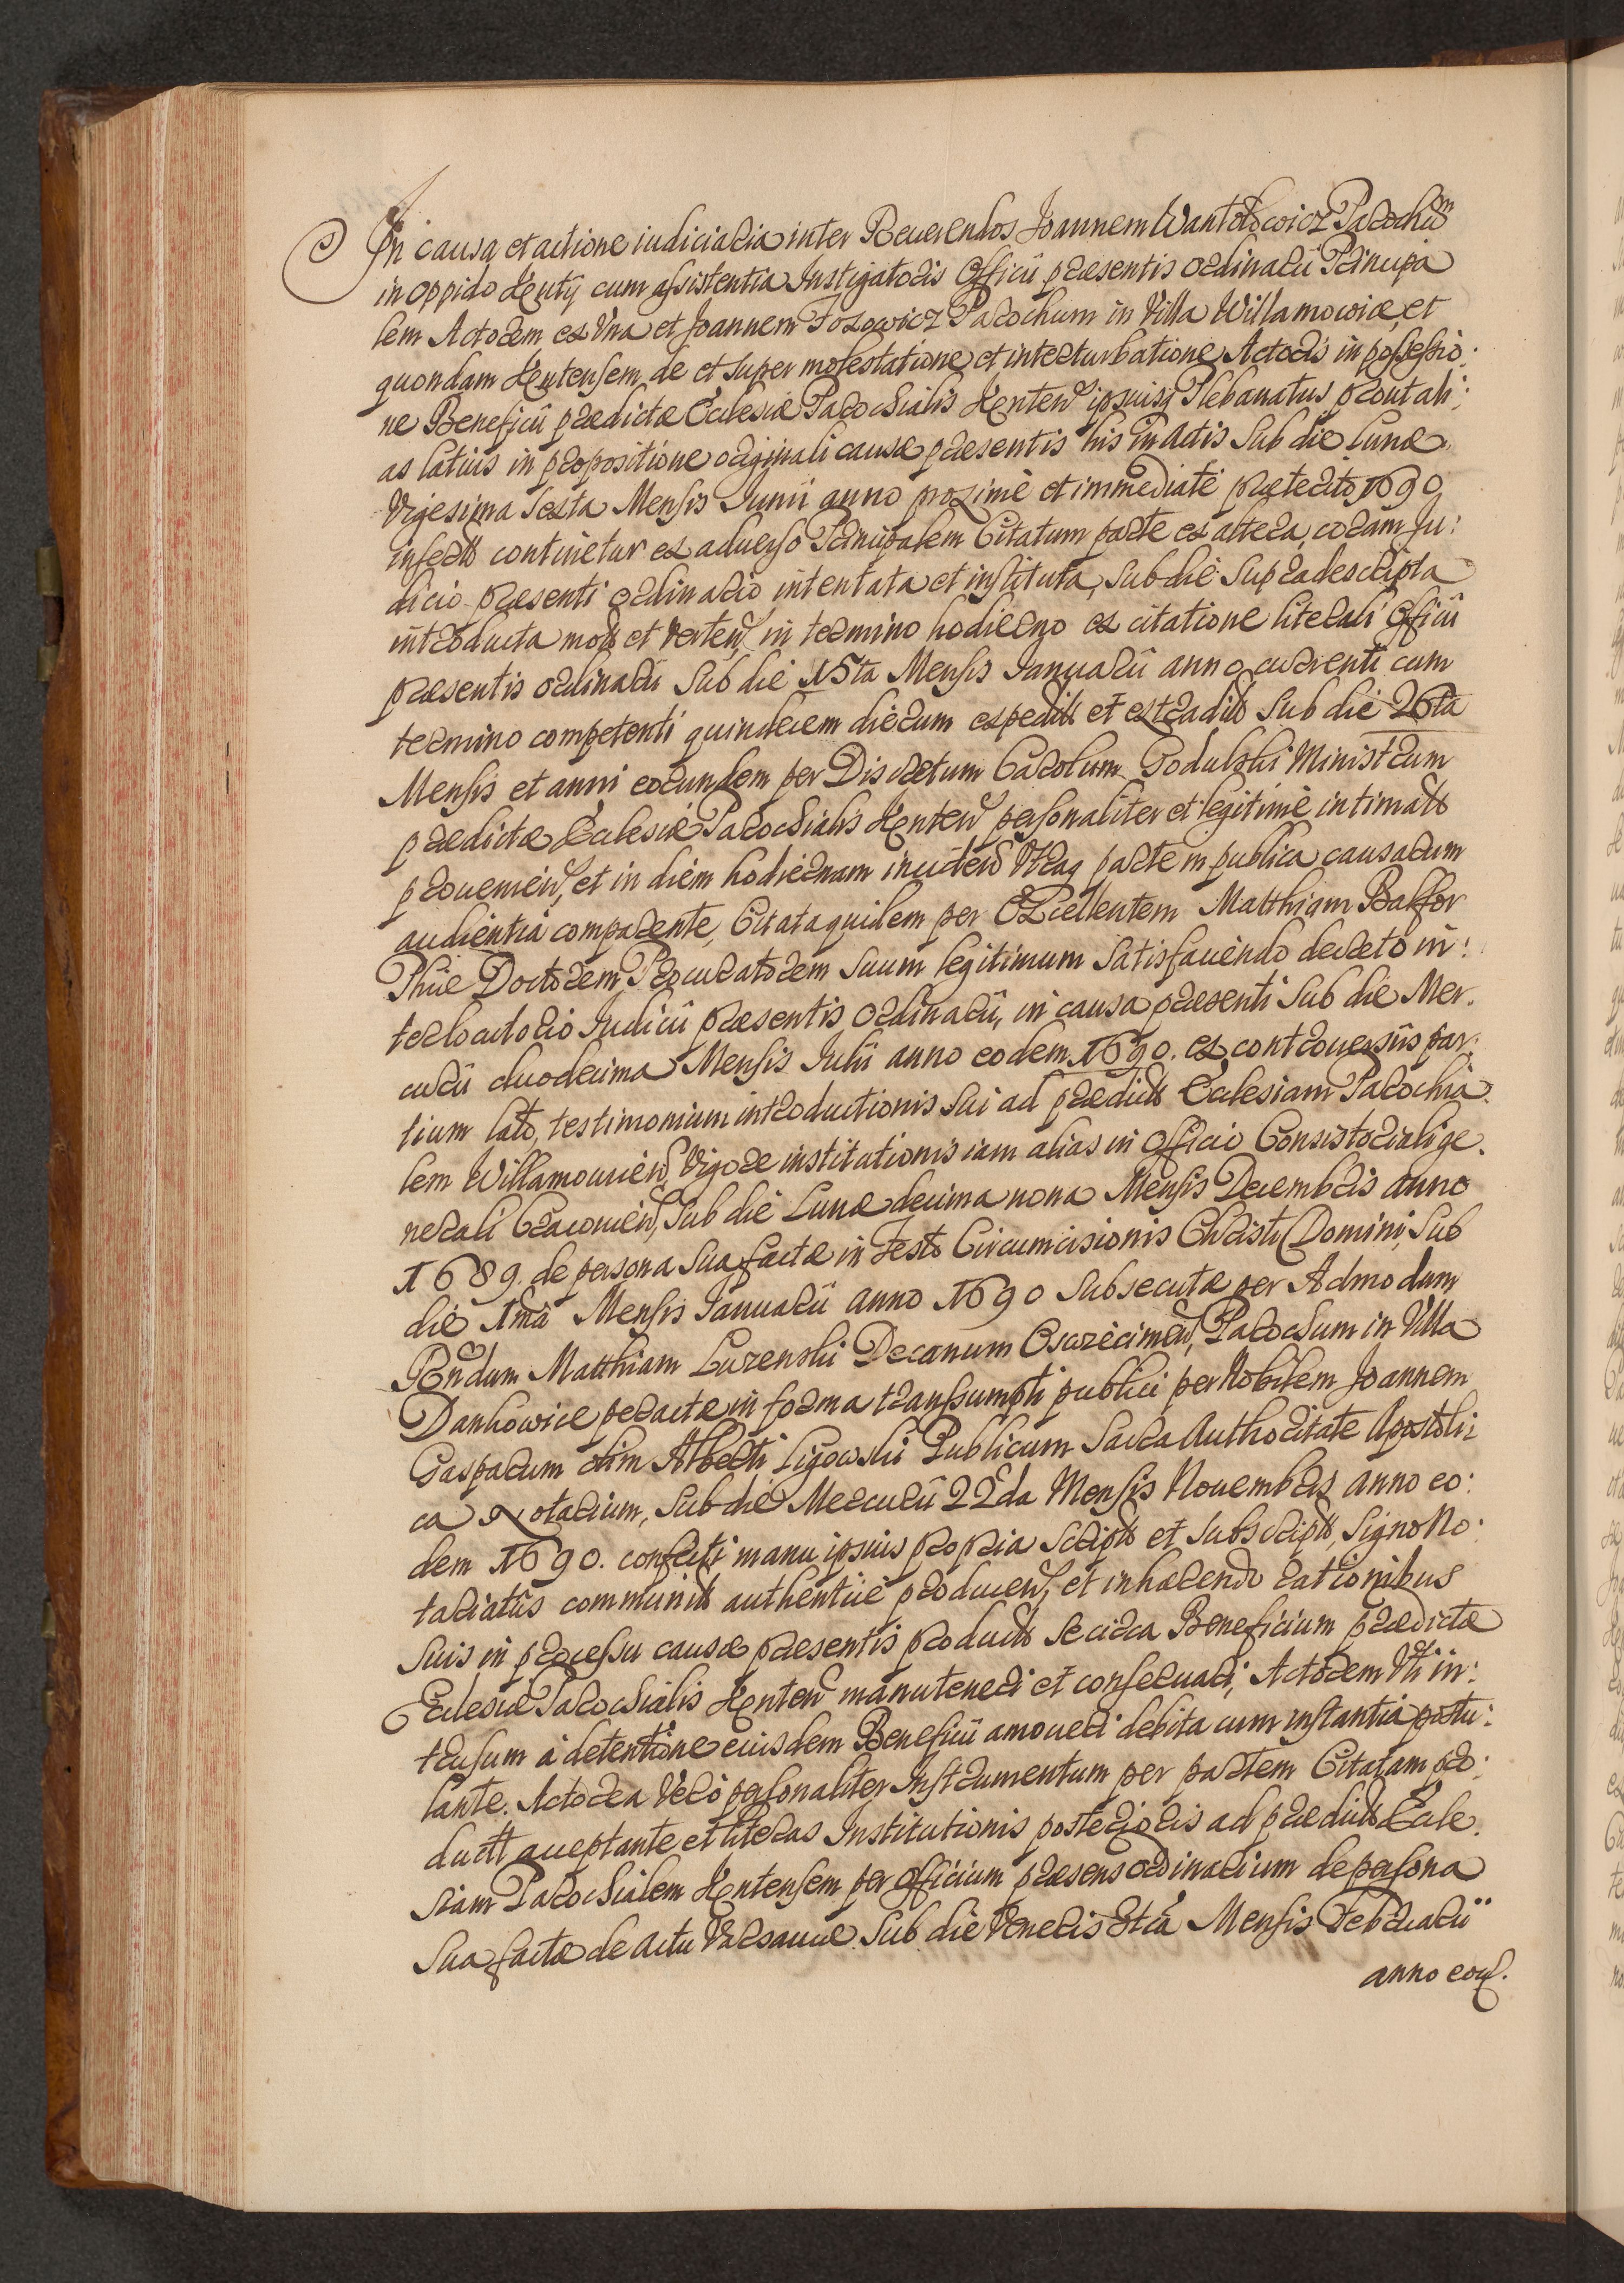 In causa et actione iudiciaria inter Reuerendos Joannem Wantolowicz Parochū
in oppido Kenty cum assistentia Instigatoris Officii præsentis ordinarii Principa
lem Actorem ex Vna et Joannem Fozowicz Parochum in Villa Willamowice, et
quondam Kentensem de et super molestatione et interturbatione Actoris in possessio:
ne Beneficii prædictæ Ecclesiæ Parochialis Kenten ipsiusq Plebanatus, prout ali:
as latius in propositione originali causæ præsentis his in Actis sub die Lunæ
Vigesima Sexta Mensis Junii anno proximè et immediatè præterito 1690
inserto continetur ex aduerso Principalem Citatum parte ex altera, coram Ju:
dicio præsenti ordinario, intentata et instituta, sub die supradescripta
introducta mota et verten, in termino hodierno ex citatione literali Officii
præsentis ordinarii sub die 15ta Mensis Januarii anno currenti cum
termino competenti quindecem dierum expedita et extradita sub die 26ta
Mensis et anni eorundem per Discretum Carolum Godulski Ministrum
prædictæ Ecclesiæ Parochialis Kenten personaliter et legitimè intimata
prouenien, et in diem hodiernam inciden Vtraq parte in publica causarum
audientia comparente, Citata quidem per Excellentem Matthiam Balfor
Phiæ Doctorem Procuratorem suum legitimum satisfaciendo decreto in:
terlocutorio Judicii præsentis ordinarii, in causa præsenti sub die Mer.
curii duodecima Mensis Julii anno eodem 1690. ex controuersiis par:
tium lato, testimonium introductionis sui ad prædictā Ecclesiam Parochia
lem Willamouicen, Vigore institutionis iam alias in Officio Consistoriali ge.
nerali Cracouien, sub die Lunæ decima nona Mensis Decembris anno
1689. de persona sua factæ in Festo Circumcisionis Christi Domini, sub
die 1mâ Mensis Januarii anno 1690 subsecutæ per Admodum
Rndum Matthiam Lurenski Decanum Oswiecimen, Parochum in Villa
Dankowice peractæ in forma transsumpti publici per Nobilem Joannem
Gasparum olim Alberti Ligowski Publicum Sacra Authoritate Apostoli:
ca Notarium, sub die Mercurii 22da Mensis Nouembris anno eo:
dem 1690. confecti manu ipsius propria scripto et subscripto, signo No:
tariatus communito authenticè producen, et inhærendo rationibus
suis in processu causæ præsentis productis se circa Beneficium prædictæ
Ecclesiæ Parochialis Kenten manuteneri et conseruari, Actorem Vti in:
trusum à detentione eiusdem Beneficii amoueri debita cum instantia postu:
lante. Actorea Verò personaliter Instrumentum per partem Citatam pro:
ductū acceptante et literas Institutionis posterioris ad prædictā Eccle.
siam Parochialem Kentensem per Officium præsens ordinarium de persona
sua factæ de actu Varsauiæ sub die Veneris 3tiâ Mensis Februarii
anno eod.